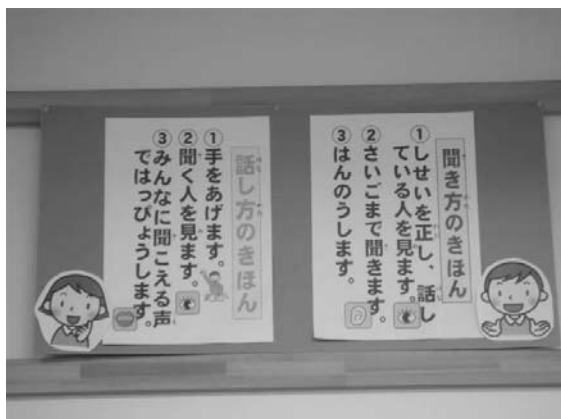 聞き方のきほん
①しせいを正し、話し
ている人を見ます。
②さいごまで聞きます。
③はんのうします。
話し方のきほん
①手をあげます。
②聞く人を見ます。
③みんなに聞こえる声
ではっぴょうします。